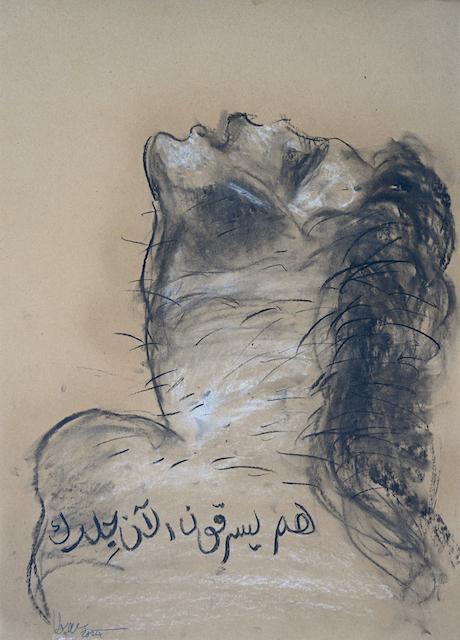 هم يسرقون الآن جِلدك
2024